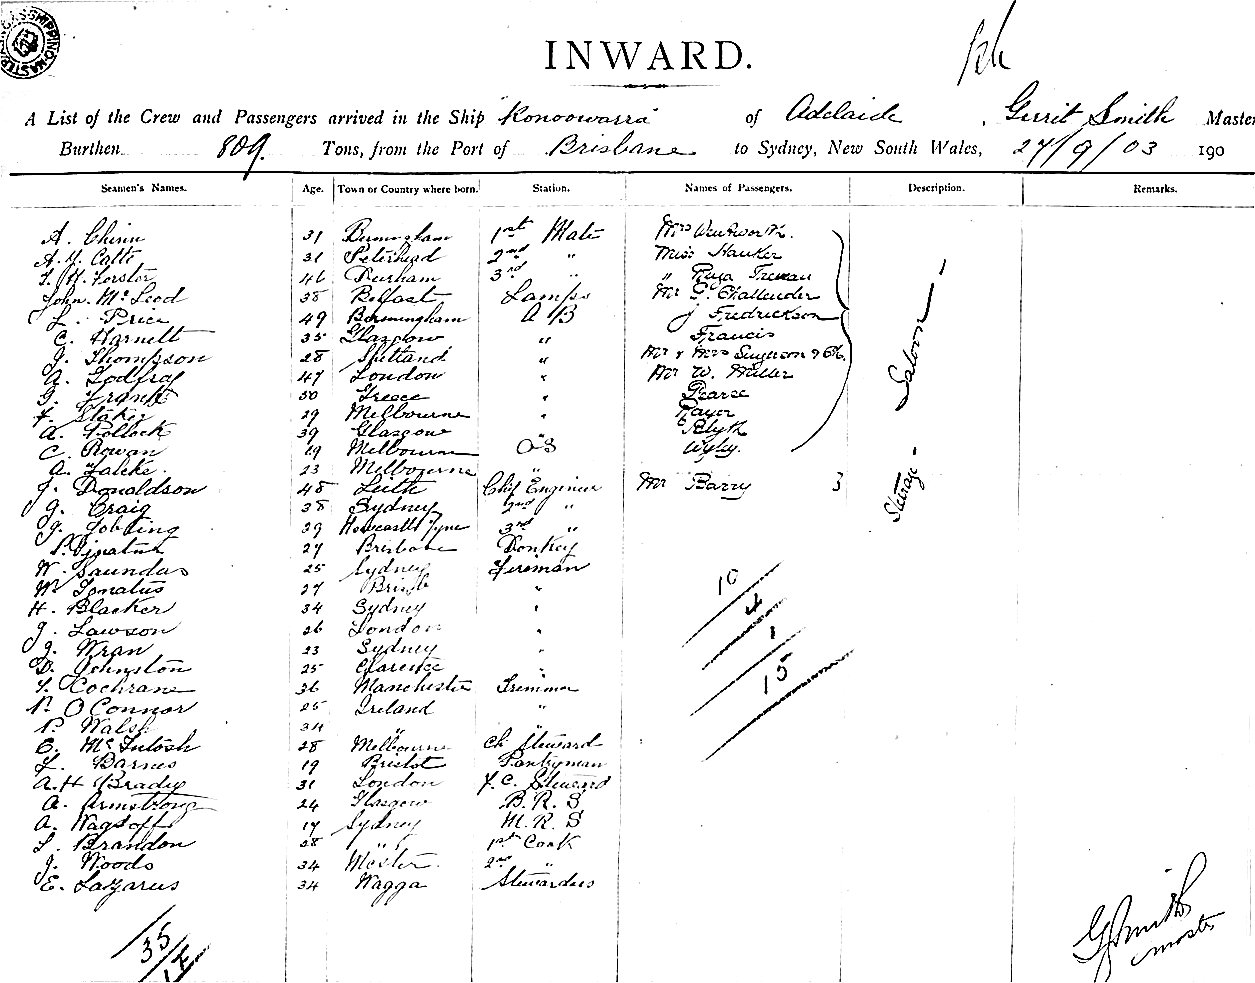 INWARD.
A List of the Crew and Passengers arrived in the Ship "Konoowarra" of Adelaide, Gerrit Smith Master
Burthen 809 Tons, from the Port of Brisbane to Sydney, New South Wales, 27/9/03 190
Seamen's Names. Age. Town or Country where born. Station. Names of Passengers. Description. Remarks.
A. Chinn 31 Birmingham 1st Mate Mrs Wentworth.
A. Y. Catto 31 Peterhead 2nd " Miss Hawker
T. H. Forster 46 Durham 3rd " "
John McLeod 38 Belfast Lamps Mr G. Challender
L. Price 49 Birmingham A B J Fredrickson
C. Harnett 35 Glasgow " Francis
J. Thompson 28 Shetland " Mr & Mrs
A. Godfray 47 London " Mr W. Miller
G. Frank 30 Greece " Pearse
F. Staker 29 Melbourne "
A. Pollock 39 Glasgow " Blyth
C. Rowan 19 Melbourne OS Wyly.
A. 23 Melbourne "
J. Donaldson 48 Leith Chief Engineer Mr Barry 3
G. Craig 38 Sydney 2nd "
J. Jobling 29 Newcastle Tyne 3rd "
P. Ignatus 27 Brisbane Donkey
W. Saundas 25 Sydney Fireman
W. Ignatius 27 Brisb "
H. Blacker 34 Sydney "
J. Lawson 26 London "
J. Wran 23 Sydney "
D. Johnston 25 Clarence "
T. Cochrane 36 Manchester Trimmer
P. O'Connor 25 Ireland "
P. Walsh 34 " "
C. McIntosh 28 Melbourne Ch Steward
L. Barnes 19 Bristol Pantryman
A. H Brady 31 London F. C. Steward
A. Armstrong 24 Glasgow B. R. S
A. Wagstoff 17 Sydney M. R. S
L. Brandon 28 " 1st Cook
J. Woods 34 2nd "
E. Lazarus 34 Wagga Stewardess
Saloon
Steerage
10
4
1
15
35
G Smith
master